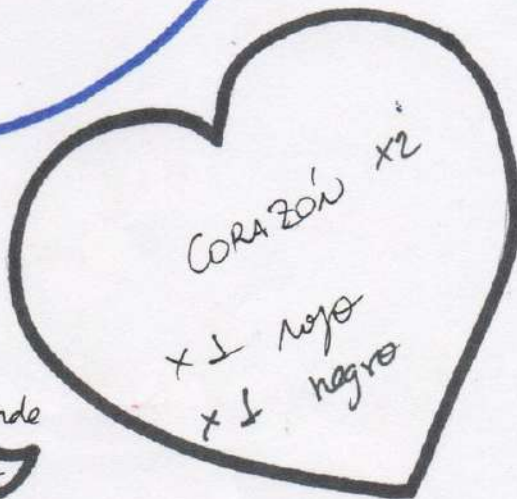 CORAZÓN x2
x1 rojo
x1 negro